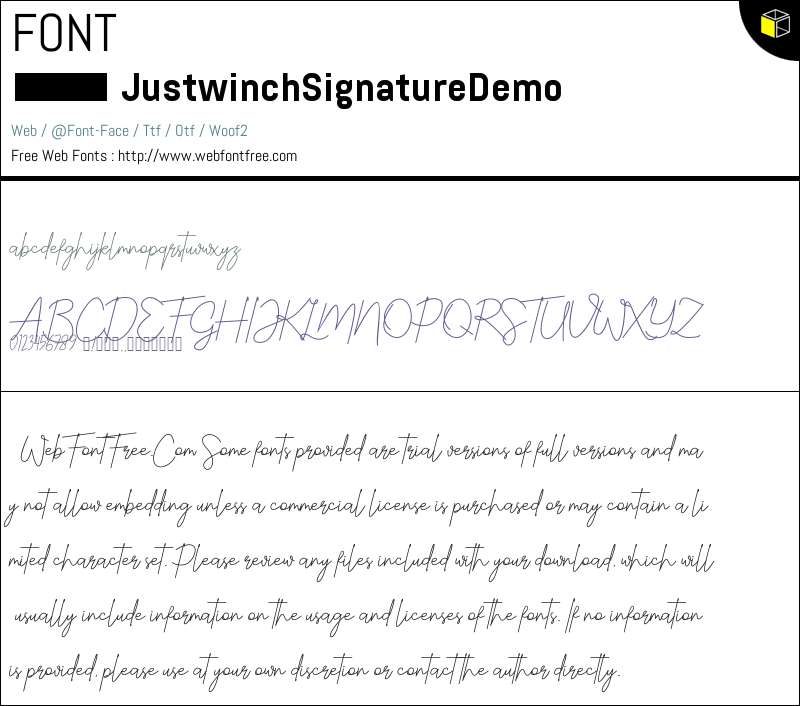 FONT
JustwinchSignatureDemo
Web / @Font-Face / Ttf / Otf / Woof2
Free Web Fonts : http://www.webfontfree.com
abcdefghijklmnopqrstuvwxyz
ABCDEFGHIJKLMNOPQRSTUVWXYZ
0123456789
WebFontFree.Com Some fonts provided are trial versions of full versions and ma
y not allow embedding unless a commercial license is purchased or may contain a li
mited character set. Please review any files included with your download, which will
usually include information on the usage and licenses of the fonts. If no information
is provided, please use at your own discretion or contact the author directly.